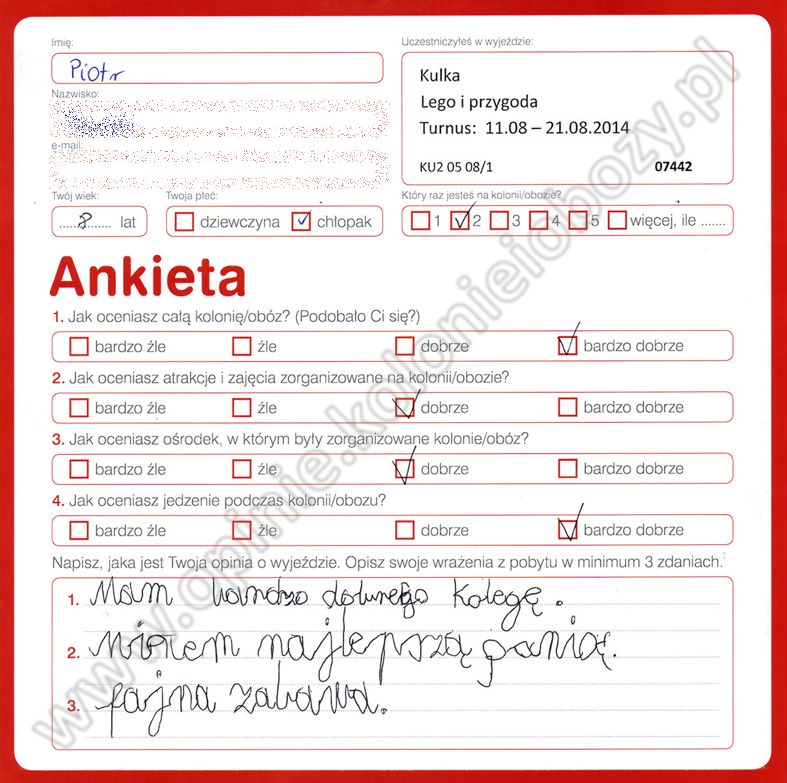 Imię:
Piotr
Nazwisko:
e-mail:
Uczestniczyłeś w wyjeździe:
Kulka
Lego i przygoda
Turnus: 11.08 – 21.08.2014
KU2 05 08/1 07442
Twój wiek:
.....8...... lat
Twoja płeć:
dziewczyna chłopak
Który raz jesteś na kolonii/obozie?
1 2 3 4 5 więcej, ile .......
Ankieta
1. Jak oceniasz całą kolonię/obóz? (Podobało Ci się?)
bardzo źle źle dobrze bardzo dobrze
2. Jak oceniasz atrakcje i zajęcia zorganizowane na kolonii/obozie?
bardzo źle źle dobrze bardzo dobrze
3. Jak oceniasz ośrodek, w którym były zorganizowane kolonie/obóz?
bardzo źle źle dobrze bardzo dobrze
4. Jak oceniasz jedzenie podczas kolonii/obozu?
bardzo źle źle dobrze bardzo dobrze
Napisz, jaka jest Twoja opinia o wyjeździe. Opisz swoje wrażenia z pobytu w minimum 3 zdaniach.
1. Mam bardzo kolegę.
2. najlepszą panią.
3. fajna zabawa.
www.opinie.kolonieiobozy.pl